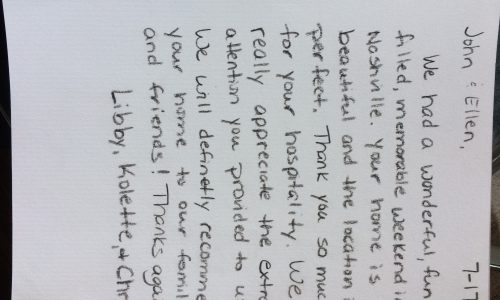 7-17
John & Ellen,
We had a wonderful, fun
filled, memorable weekend i
Nashville. Your home is
beautiful and the location i
perfect. Thank you so much
for your hospitality. We
really appreciate the extra
attention you provided to u
We will definetly recomme
your home to our famil
and friends! Thanks agai
Libby, Kolette, & Chr